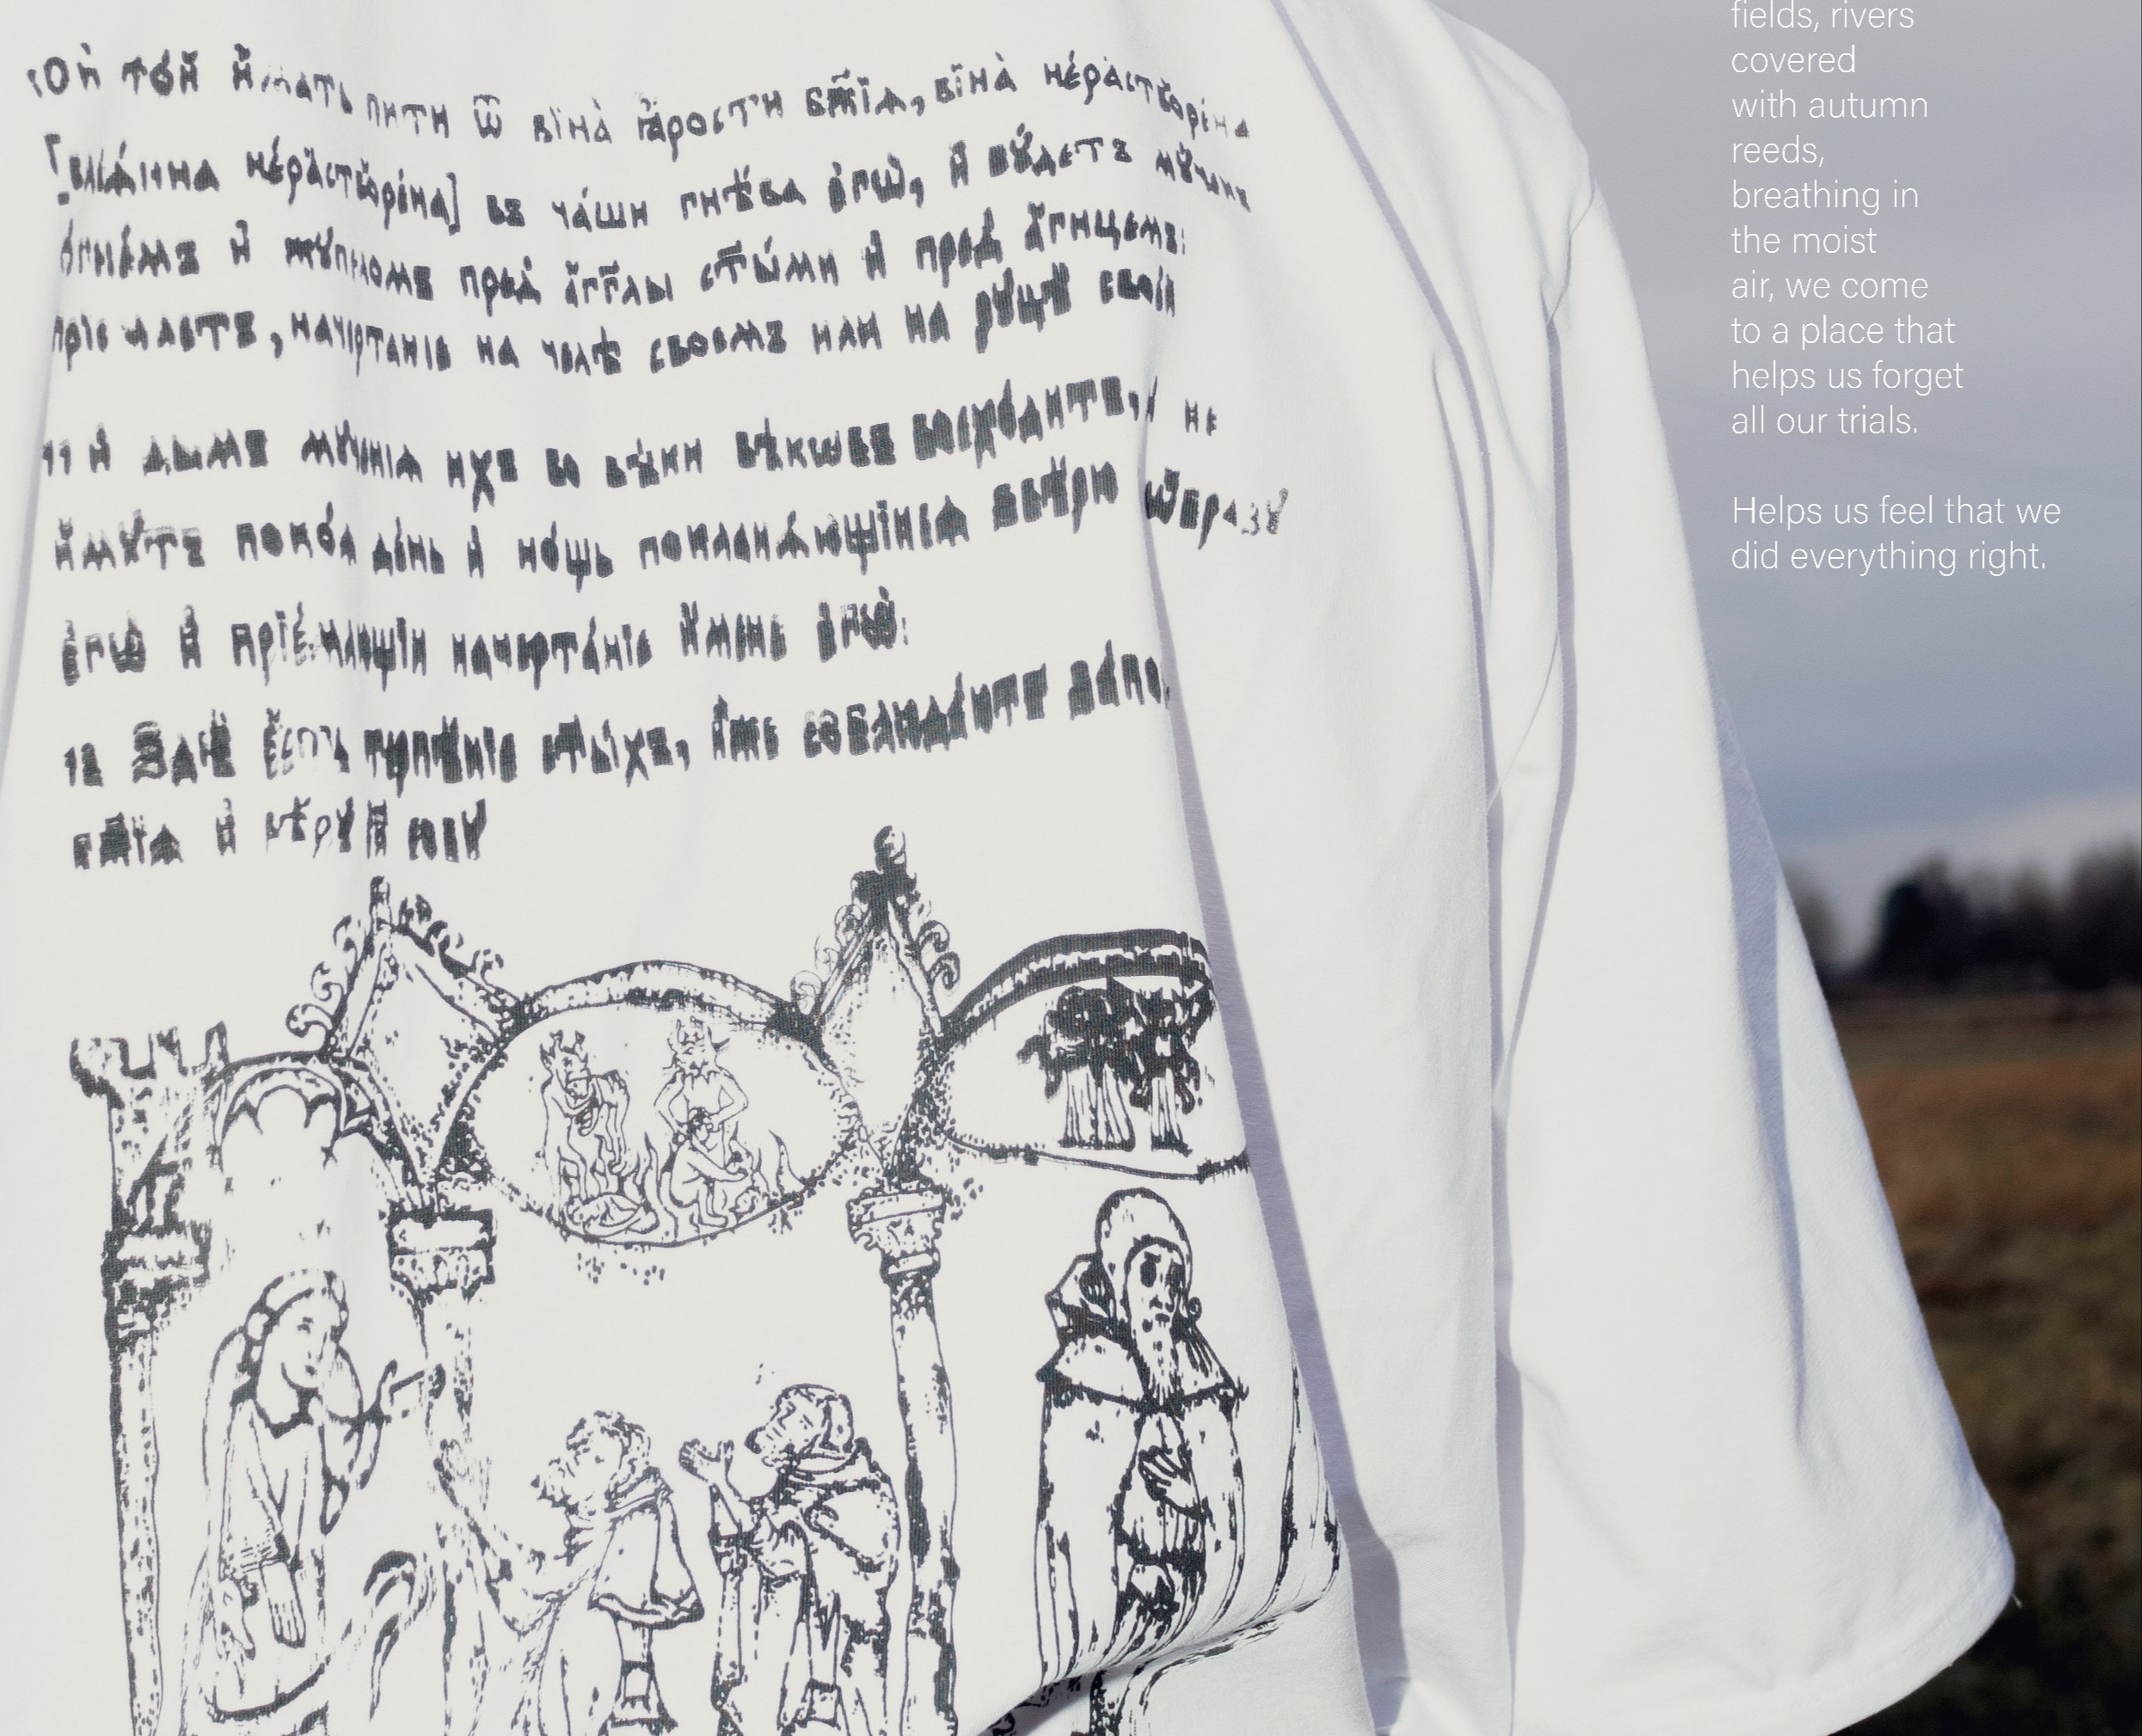 10и то́й и҆́мать пи́ти ѿ вїна̀ ꙗ҆́рости бж҃їѧ, вїна̀ не́раство́рена
[влїѧ́нна нера́ство́рена] въ ча́ши гнѣ́ва є҆гѡ̀, и҆ бꙋ́детъ мꙋ́ченъ
ѻ҆гне́мъ и҆ жꙋ́пеломъ пред̾ а҆́гг҃лы ст҃ы́ми и҆ пред̾ а҆́гнцемъ:
прїе млетъ, начертанїе на челѣ̀ своемъ или на рꙋцѣ̀ своей
11 и҆ ды́мъ мꙋче́нїѧ ихъ во вѣ́ки вѣкѡ́въ восхо́дитъ, и не
и҆́мꙋтъ поко́ѧ де́нь и҆ но́щь покланѧ́ющїисѧ ѕвѣ́рю ѡ҆́бразꙋ
є҆гѡ̀ и҆ прїе́млющїи начерта́нїе и҆́мене є҆гѡ̀:
12 Здѣ̀ є҆́сть терпѣ́нїе ст҃ы́хъ, и҆̀же соблюда́ютъ за́по.
бж҃їѧ и҆ вѣ́рꙋ
fields, rivers
covered
with autumn
reeds,
breathing in
the moist
air, we come
to a place that
helps us forget
all our trials.
Helps us feel that we
did everything right.